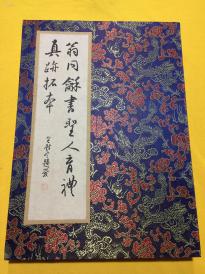 翁同龢書聖人育神
真跡拓本